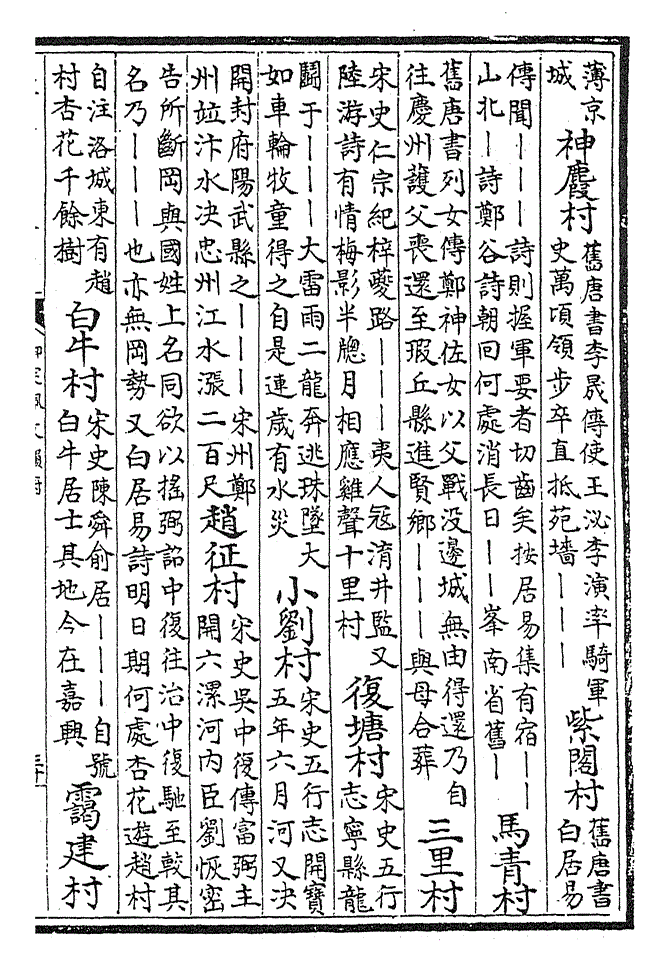 薄京
城
神麚村
舊唐書李晟傳使王泌李演率騎軍
史萬頃領步卒直抵苑墻一一一
紫閣村
舊唐書
白居易
傳聞一一一詩則握軍要者切齒矣按居易集有宿一一
山北一詩鄭谷詩朝回何處消長日一一峯南省舊一
馬青村
舊唐書列女傳鄭神佐女以父戰没邊城無由得還乃自
往慶州護父喪還至瑕丘縣進賢鄉一一一與母合葬
三里村
宋史仁宗紀梓夔路一一一夷人冦淯井監又
陸游詩有情梅影半牕月相應雞聲十里村
復塘村
宋史五行
志寧縣龍
鬭于一一一大雷雨二龍奔逃珠墜大
如車輪牧童得之自是連歲有水災
小劉村
宋史五行志開寶
五年六月河又决
開封府陽武縣之一一一宋州鄭
州竝汴水决忠州江水漲二百尺
趙征村
宋史吳中復傳富弼主
開六漯河内臣劉恢密
告所斷岡與國姓上名同欲以搖弼詔中復往治中復馳至較其
名乃一一一也亦無岡勢又白居易詩明日期何處杏花遊趙村
自注洛城東有趙
村杏花千餘樹
白牛村
宋史陳舜俞居一一一自號
白牛居士其地今在嘉興
靄建村